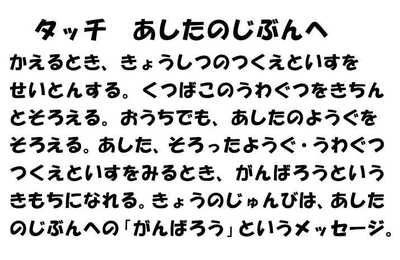 タッチ　あしたのじぶんへ
かえるとき、きょうしつのつくえといすを
せいとんする。くつばこのうわぐつをきちん
とそろえる。おうちでも、あしたのようぐを
そろえる。あした、そろったようぐ・うわぐつ
つくえといすをみるとき、がんばろうという
きもちになれる。きょうのじゅんびは、あした
のじぶんへの「がんばろう」というメッセージ。